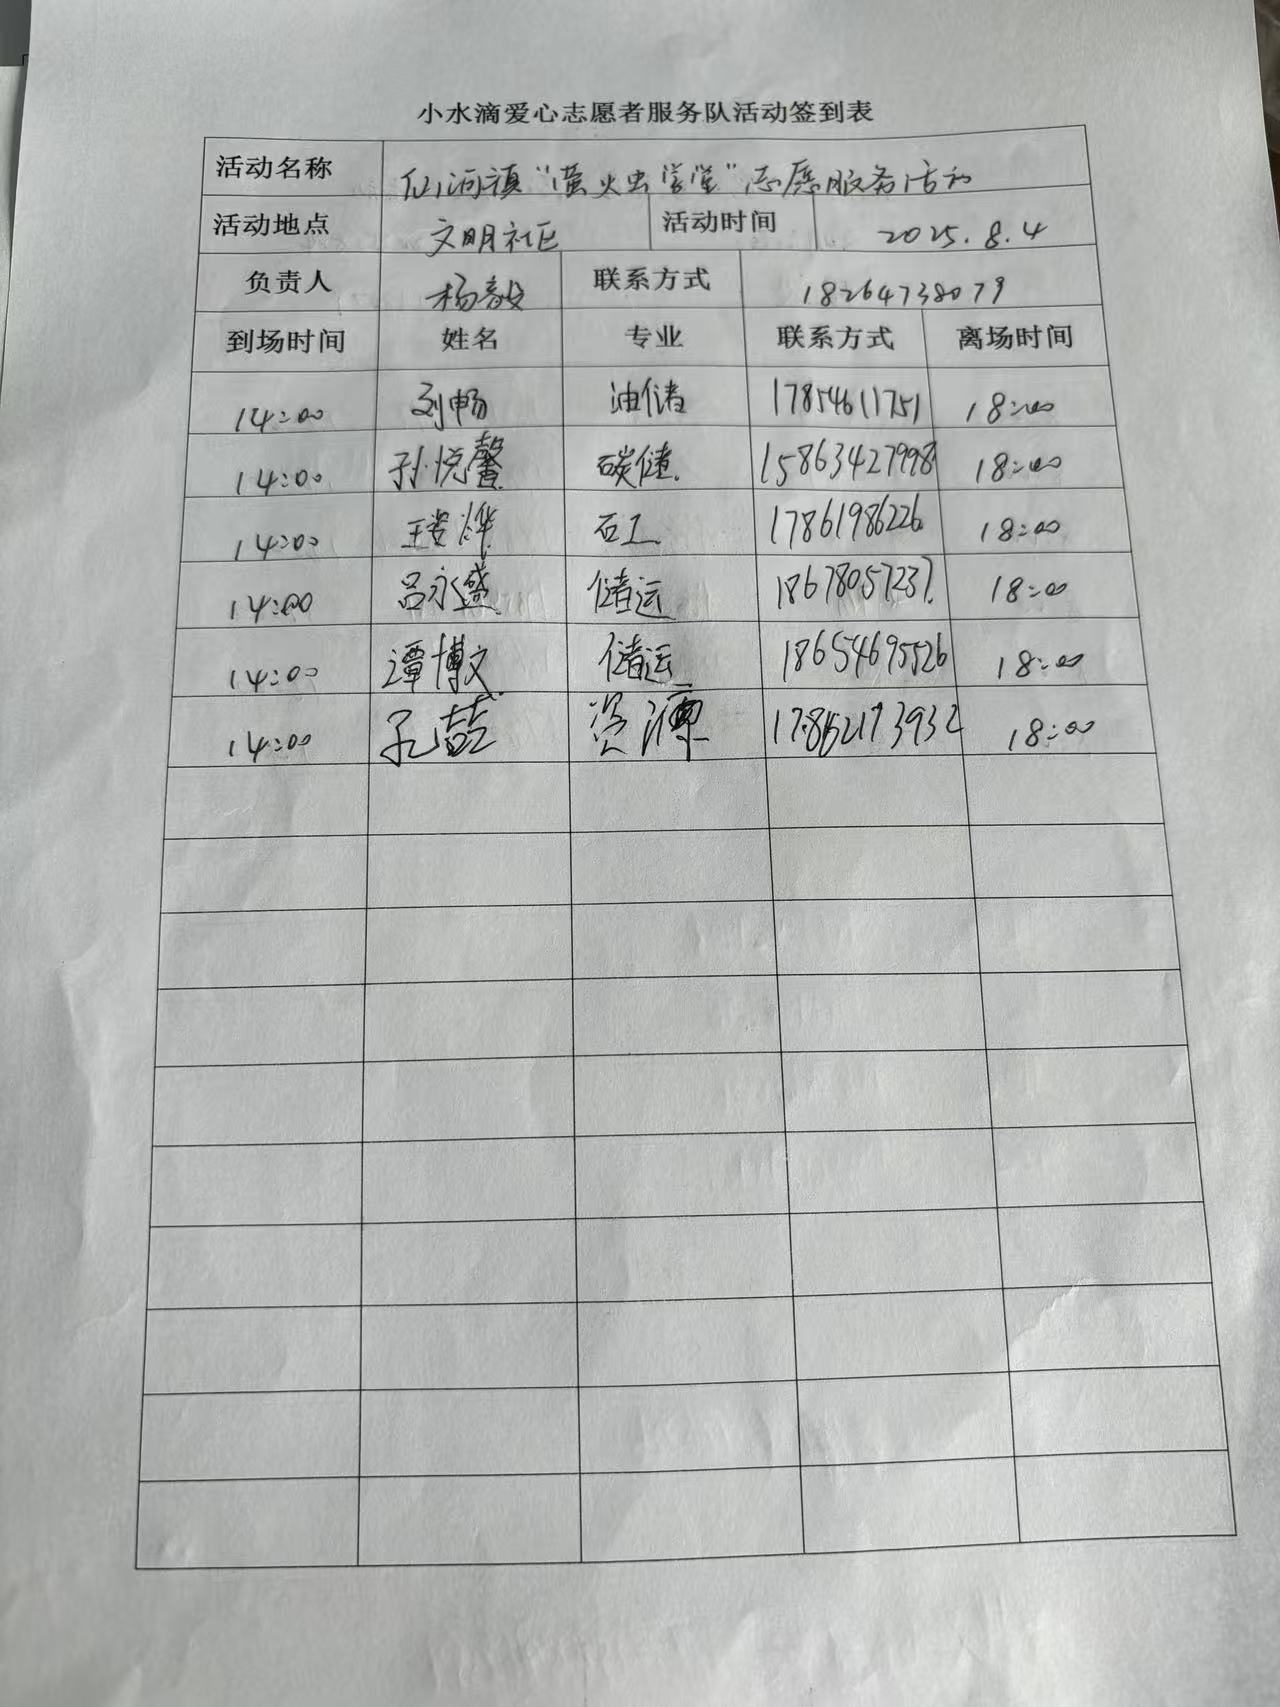 小水滴爱心志愿者服务队活动签到表
活动名称 仙河镇“萤火虫学堂”志愿服务活动
活动地点 文明社区 活动时间 2025.8.4
负责人 杨毅 联系方式 18264738079
到场时间 姓名 专业 联系方式 离场时间
14:00 刘畅 油储 17854611751 18:00
14:00 孙悦馨 碳储 15863427998 18:00
14:00 石工 17861986226 18:00
14:00 吕永盛 储运 18678057237 18:00
14:00 谭博文 储运 18654695526 18:00
14:00 孔喆 资源 17862173932 18:00